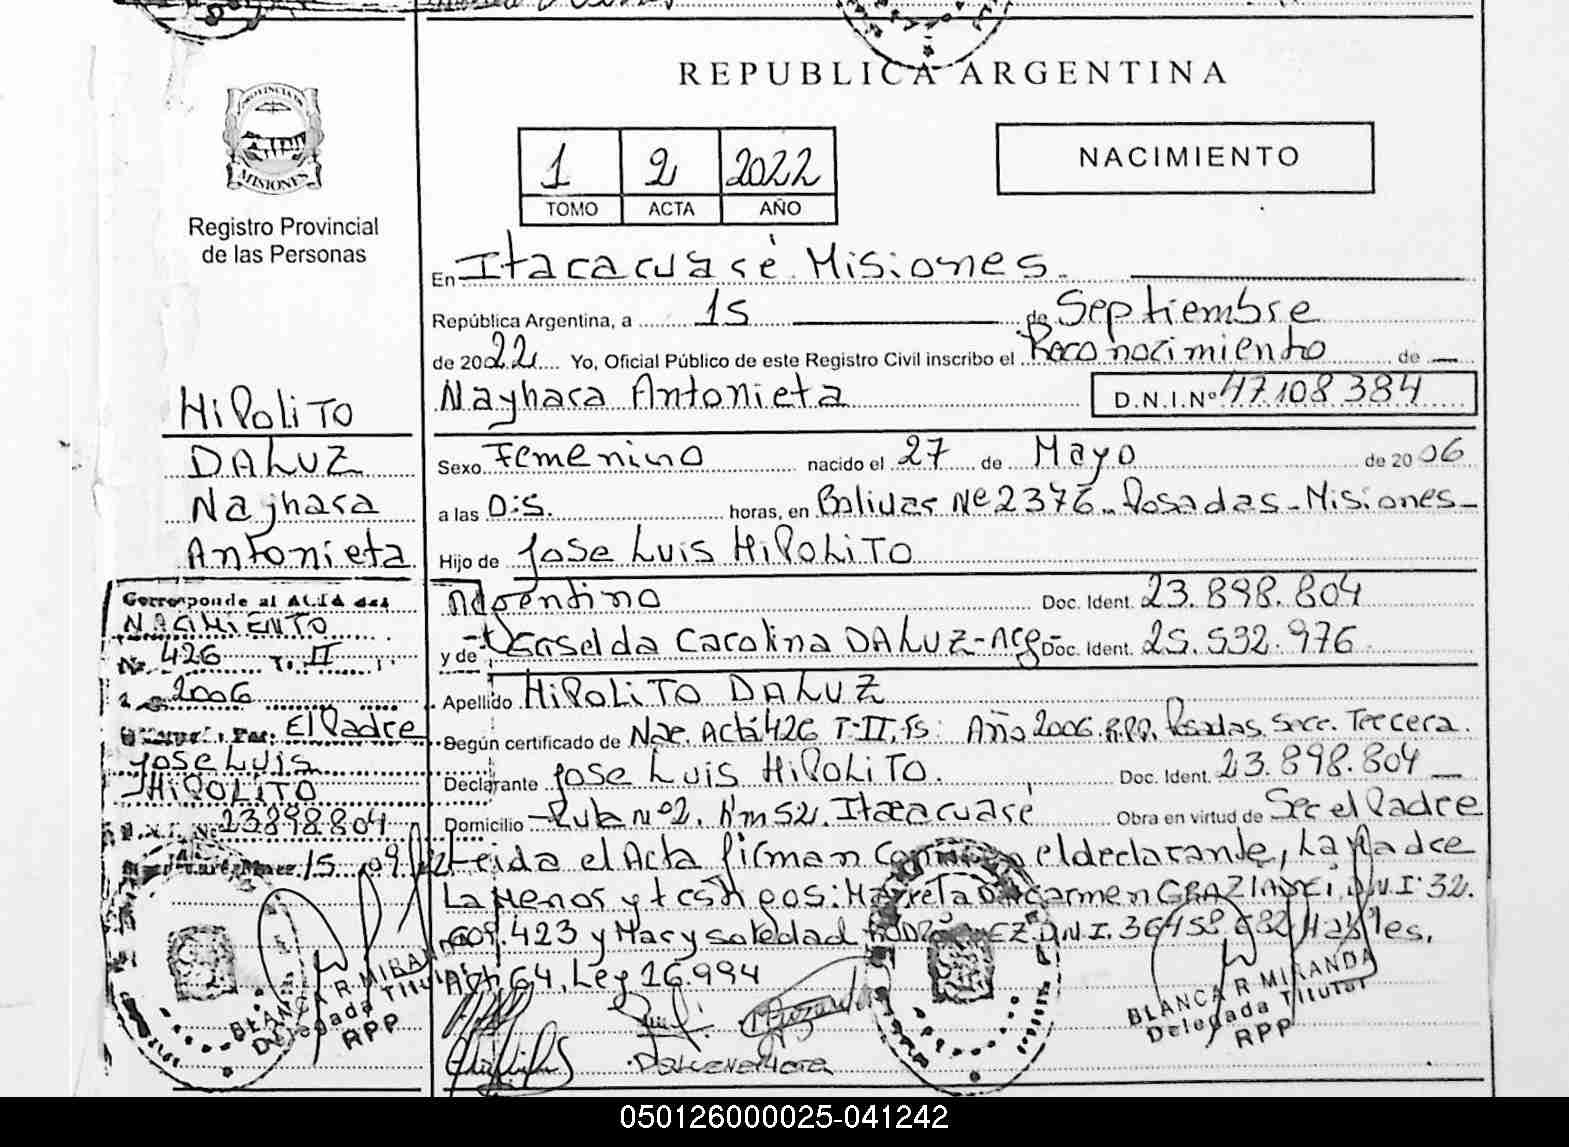 REPUBLICA ARGENTINA
PROVINCIA DE
MISIONES
Registro Provincial
de las Personas
1 2 2022
TOMO ACTA AÑO
NACIMIENTO
En Itacaruaré Misiones.
República Argentina, a 15 de Septiembre
de 2022 Yo, Oficial Público de este Registro Civil inscribo el Reconocimiento de
Nayhara Antonieta D.N.I.Nº 47.108.384
Sexo Femenino nacido el 27 de Mayo de 2006
a las 0:5. horas, en Bolivar Nº 2376 Posadas - Misiones -
Hijo de Jose Luis HIPOLITO
Argentino Doc. Ident. 23.898.804
y de Griselda Carolina DALUZ - Arg - Doc. Ident. 25.532.976
Apellido HIPOLITO DALUZ
Según certificado de Nac. Acta 426 T-II, Fs: Año 2006. R.P.P. Posadas Secc. Tercera.
Declarante Jose Luis HIPOLITO. Doc. Ident. 23.898.804
Domicilio Ruta nº2. Km 52. Itacaruaré Obra en virtud de Ser el Padre
Leida el Acta firman el declarante, La Madre
La Menor y testigos: Del Carmen GRAZIADEI, D.N.I: 32.
609.423 y Mary Soledad RODRIGUEZ D.N.I. 36458682 Habiles.
Art. 64, Ley 26.994
HIPOLITO
DALUZ
Nayhara
Antonieta
Corresponde al ACTA de:
NACIMIENTO
No. 426 T. II
2006
El Padre
Jose Luis
HIPOLITO
D.N.I. Nº 23898804
15 09 22
BLANCA R MIRANDA
Delegada Titular
RPP
BLANCA R MIRANDA
Delegada Titular
RPP
050126000025-041242